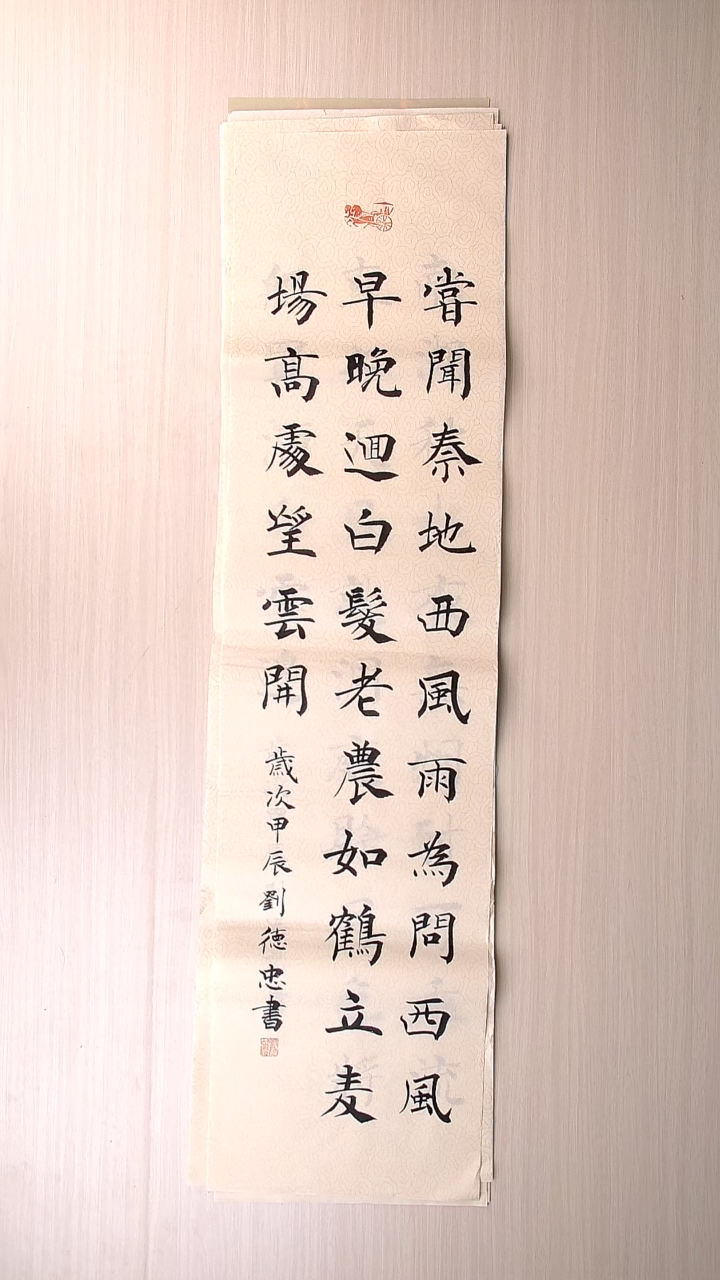 嘗聞秦地西風雨為問西風
早晚迴白髮老農如鶴立麦
場髙處望雲開
歲次甲辰劉德忠書